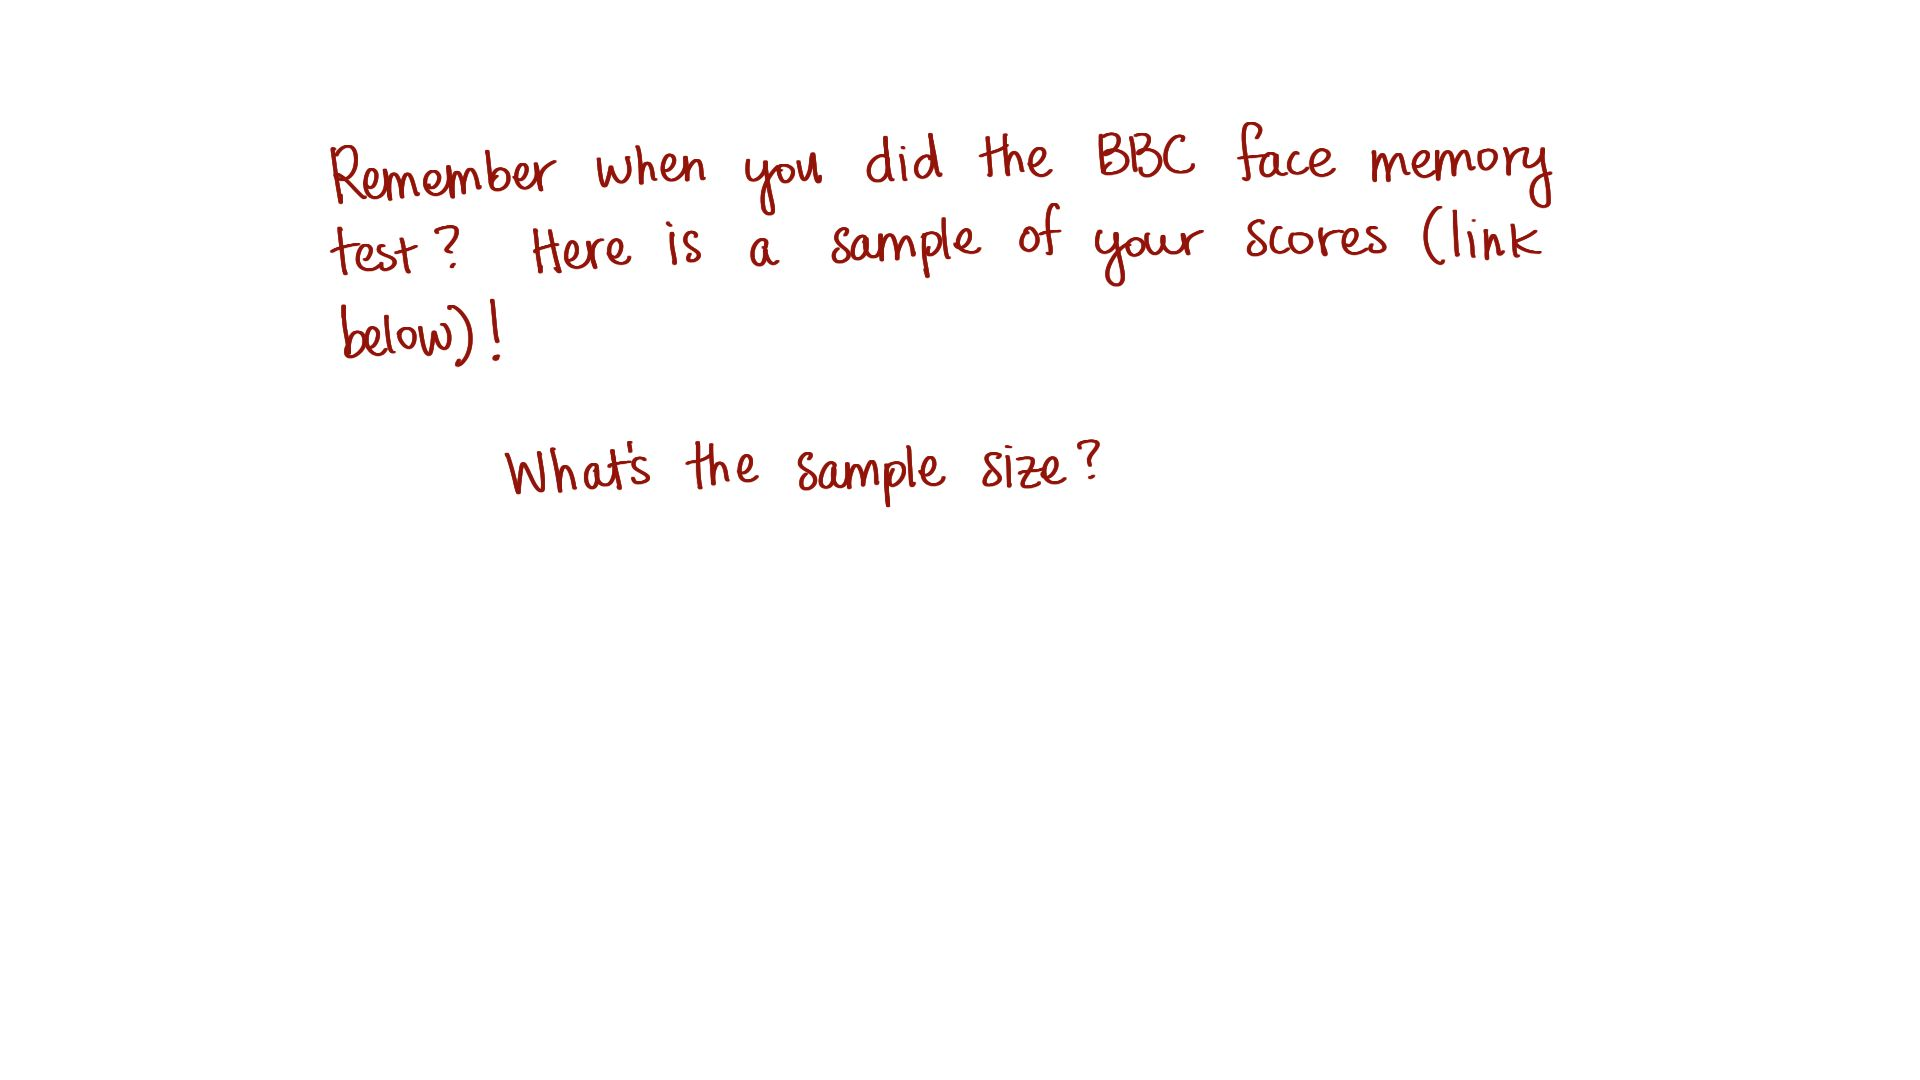 Remember when you did the BBC face memory
test? Here is a sample of your scores (link
below)!
What's the sample size?